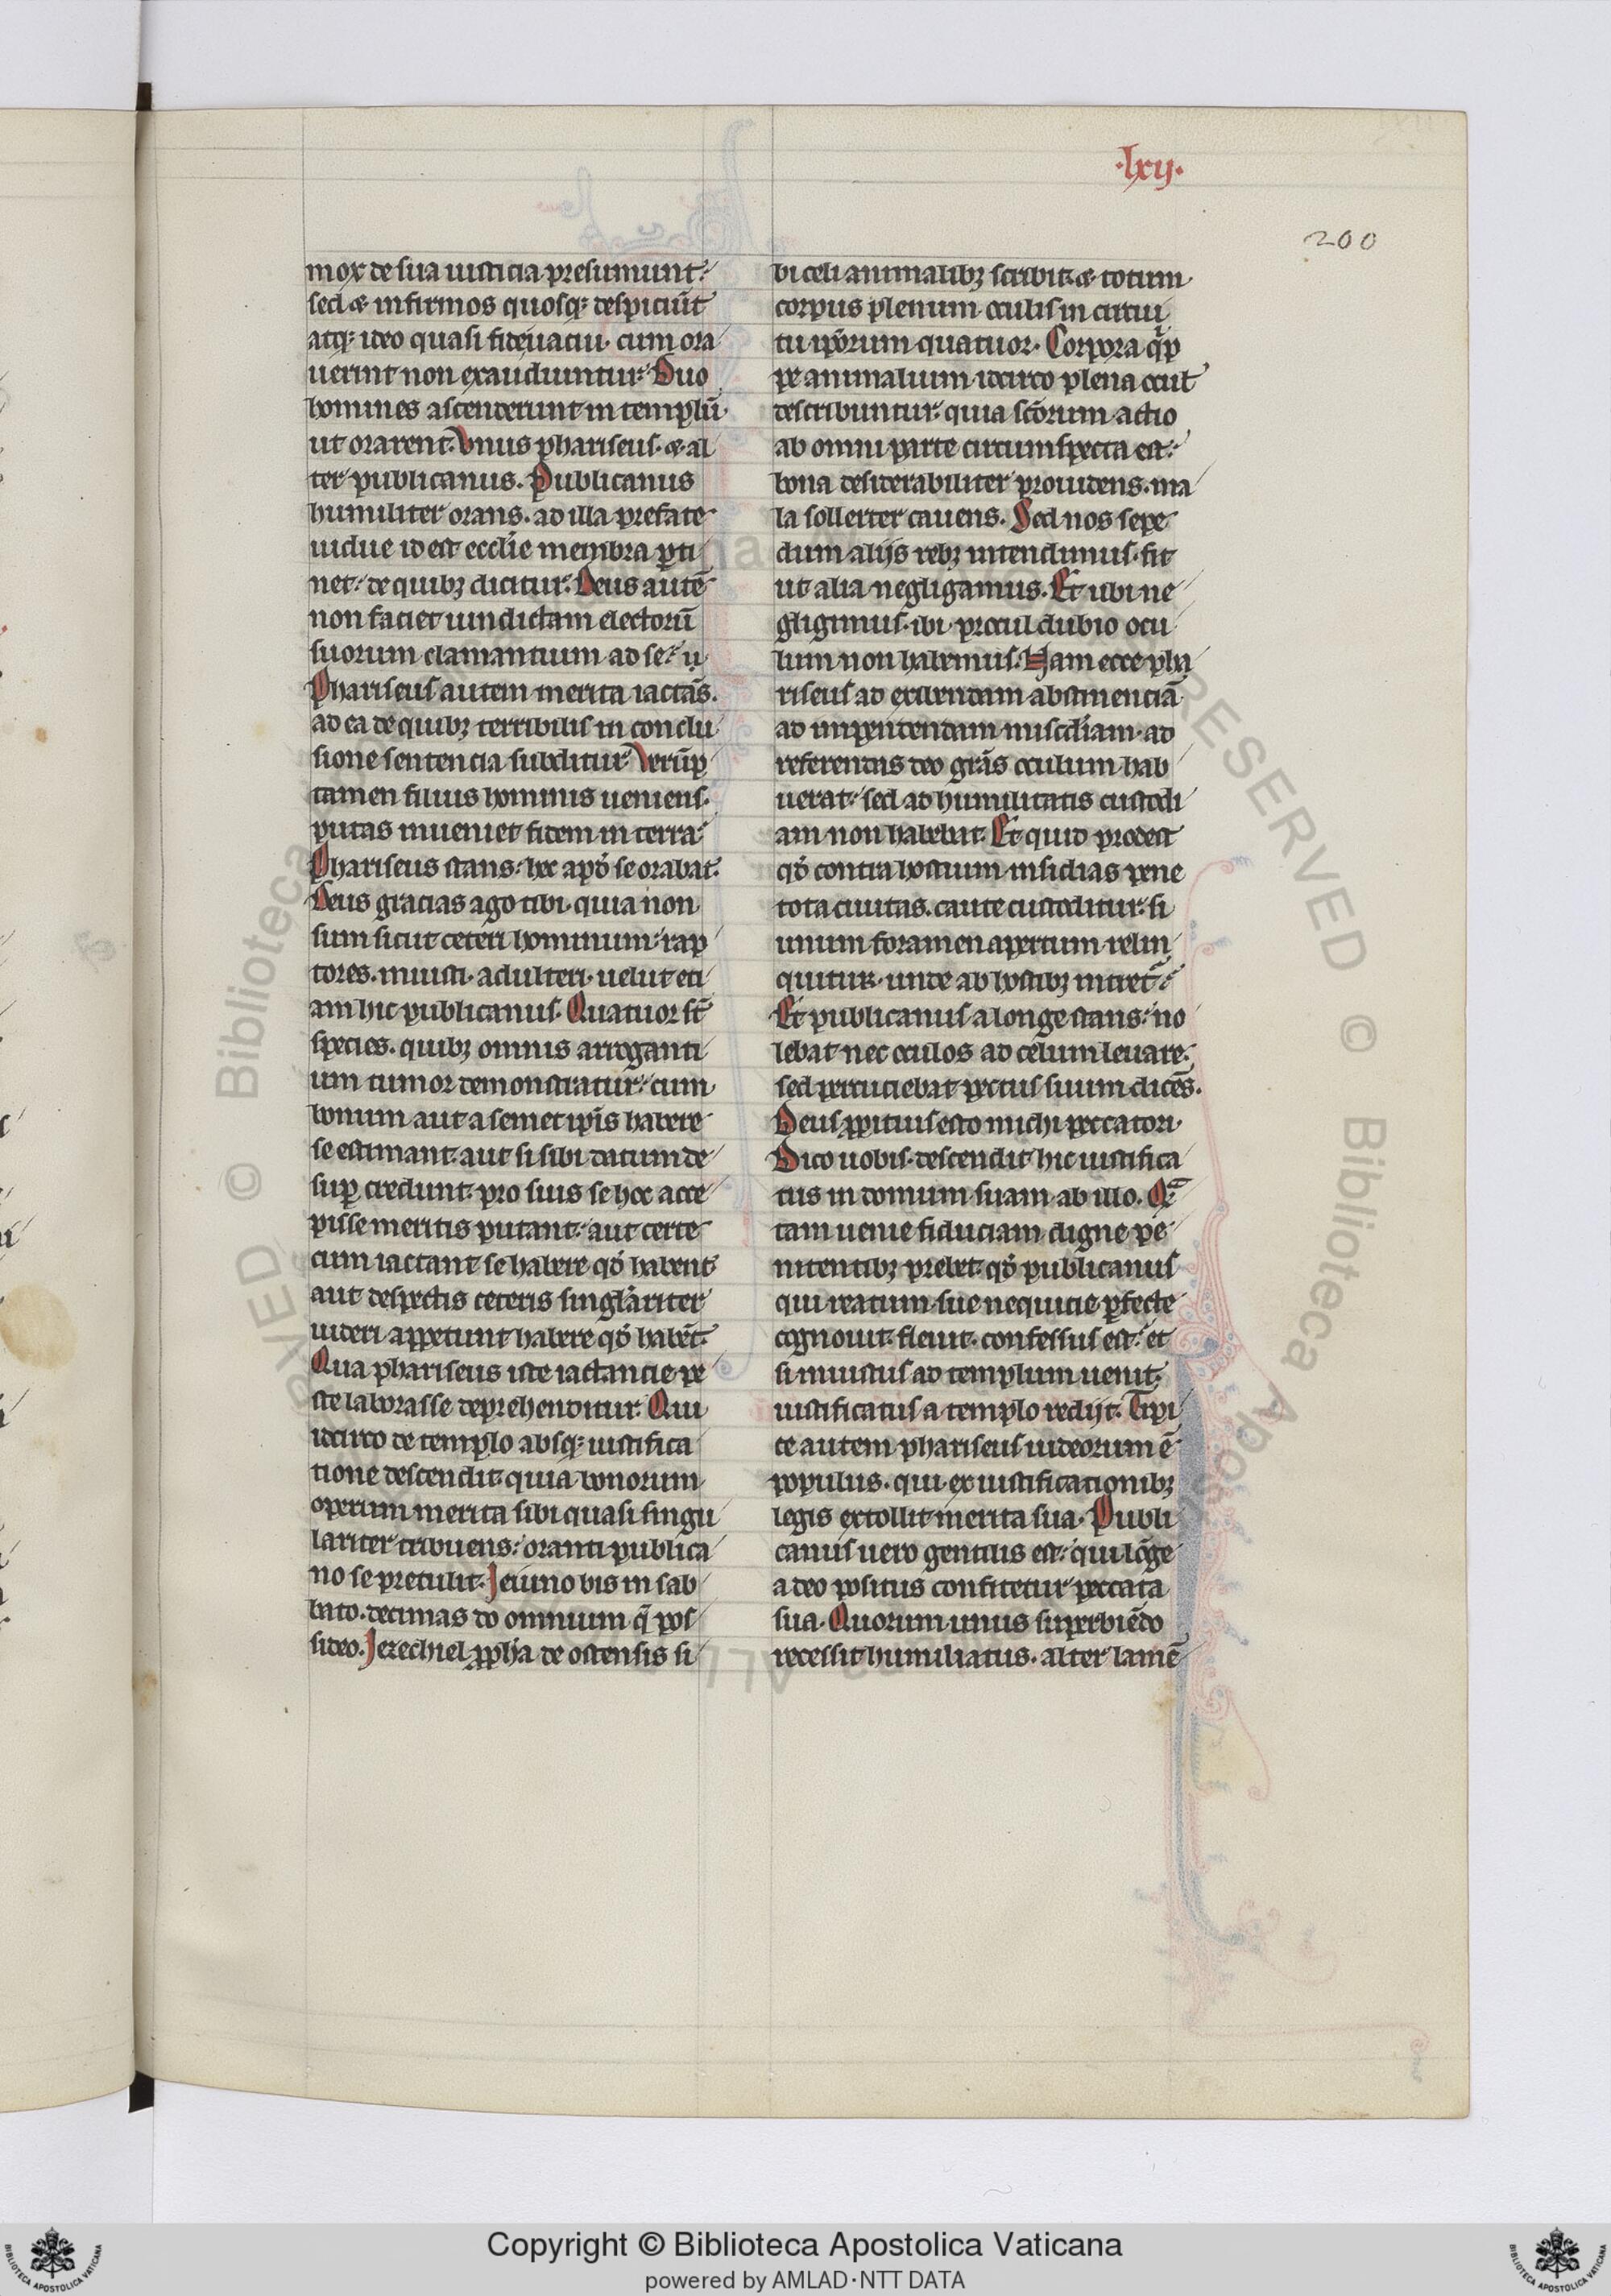 ·lxij·
200
mox de sua iusticia presumunt.
sed & infirmos quosq; despiciūt
atq; ideo quasi fide uacui. cum ora
uerint non exaudiuntur. Duo
homines ascenderunt in templū.
ut orarent. Vnus phariseus. & al
ter publicanus. Publicanus
humiliter orans. ad illa prefate
uidue id est eccl̄ie membra ꝑti
net. de quibꝫ dicitur. Deus autē
non faciet uindictam electorū
suorum clamantium ad se. ij.
Phariseus autem merita iactās.
ad ea de quibꝫ terribilis in conclu
sione sentencia subditur. Verūp
tamen filius hominis ueniens.
putas inueniet fidem in terra.
Phariseus stans. hec apđ se orabat.
Deus gracias ago tibi. quia non
sum sicut ceteri hominum. rap
tores. iniusti. adulteri. uelut eti
am hic publicanus. Quatuor st̄
species. quibꝫ omnis arroganti
um tumor demonstratur. cum
bonum aut a semet ip̄is habere
se estimant. aut si sibi datum de
suꝑ credunt. pro suis se hoc acce
pisse meritis putant. aut certe
cum iactant se habere qđ habent
aut despectis ceteris singl̄ariter
uideri appetunt habere qđ habēt.
Qua phariseus iste iactancie pe
ste laborasse deprehenditur. Qui
idcirco de templo absq; iustifica
tione descendit. quia bonorum
operum merita sibi quasi singu
lariter tribuens. oranti publica
no se pretulit. Ieiuno bis in sab
bato. decimas do omnium q̄ pos
sideo. Iezechiel ꝓph̄a de ostensis si
bi celi animalibꝫ scribit. & totum
corpus plenum oculis in circui
tu ip̄orum quatuor. Corpora q̄p
pe animalium idcirco plena ocul̄
describuntur. quia sc̄orum actio
ab omni parte circumspecta est.
bona desiderabiliter prouidens. ma
la sollerter cauens. Sed nos sepe
dum alijs rebꝫ intendimus. fit
ut alia negligamus. Et ubi ne
gligimus. ibi procul dubio ocu
lum non habemus. Nam ecce pha
riseus ad exibendam abstinenciā.
ad inpendendam mis̄cd̄iam. ad
referendas deo grās oculum hab
uerat. sed ad humilitatis custodi
am non habebat. Et quid prodest
qđ contra hostium insidias pene
tota ciuitas. caute custoditur. si
unum foramen apertum relin
quitur. unde ab hostibꝫ intret̄.
Et publicanus a longe stans. no
lebat nec oculos ad celum leuare.
sed percuciebat pectus suum dicēs.
Deus ꝓpitius esto michi peccatori.
Dico uobis. descendit hic iustifica
tus in domum suam. ab illo. Qͣ
tam uenie fiduciam digne pe
nitentibꝫ prebet. qđ publicanus
qui reatum sue nequicie ꝑfecte
cognouit. fleuit. confessus est. et
si iniustus ad templum uenit.
iustificatus a templo redijt. Tipi
ce autem phariseus iudeorum ē
populus. qui ex iustificationibꝫ
legis extollit merita sua. Publi
canus uero gentilis est. qui lōge
a deo positus confitetur peccata
sua. Quorum unus superbiēdo
recessit humiliatus. alter lamē
Copyright © Biblioteca Apostolica Vaticana
powered by AMLAD·NTT DATA